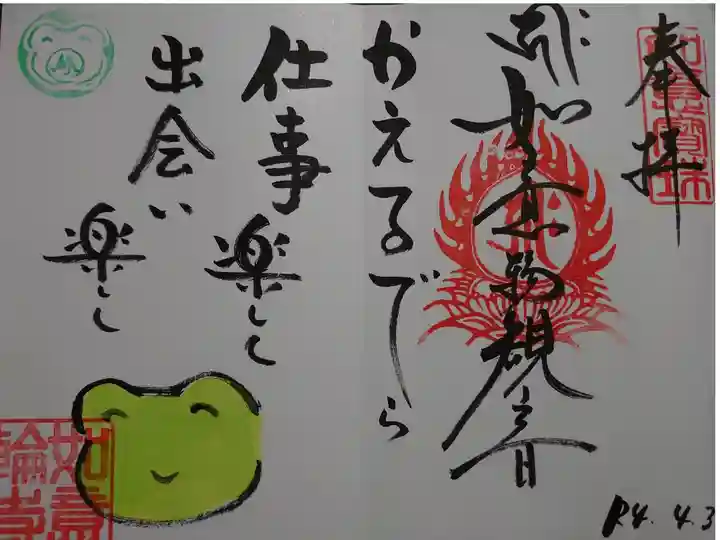 奉拝
如意輪観音
かえるでら
仕事楽しく
出会い楽しく
如意輪寺
R4.4.3